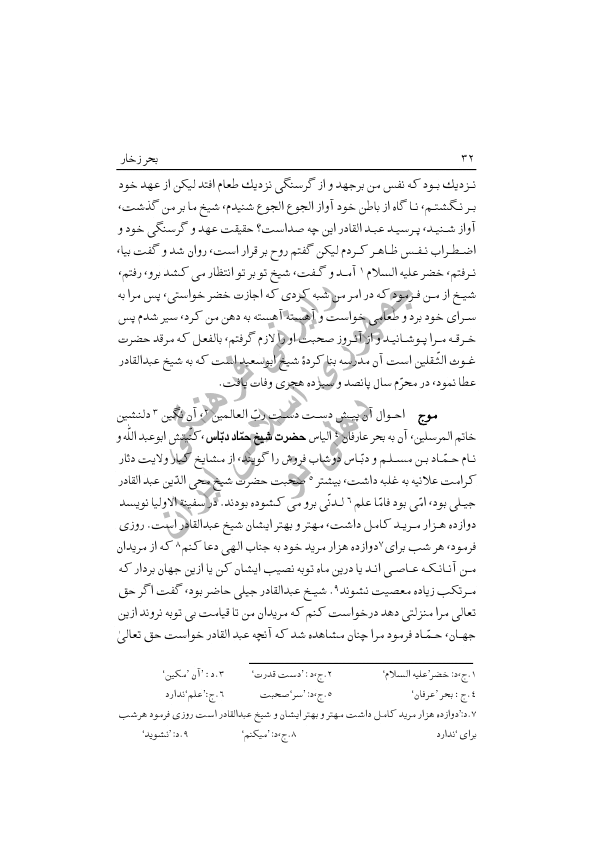 ۳۲ بحر زخار
نـزدیك بـود که نفس من برجهد و از گرسنگی نزدیك طعام افتد لیکن از عهد خود
بـر نـگشتـم، نـا گاه از باطن خود آواز الجوع الجوع شنیدم، شیخ ما بر من گذشت،
آواز شـنیـد، پـرسیـد عبـد القادر این چه صداست؟ حقیقت عهد و گرسنگی خود و
اضـطـراب نـفـس ظـاهـر کـردم لیکن گفتم روح بر قرار است، روان شد و گفت بیا،
نـرفتم، خضر علیه السلام ۱ آمـد و گـفت، شیخ تو بر تو انتظار می کشد برو، رفتم،
شیـخ از مـن فـرمـود که در امر من شبه کردی که اجازت خضر خواستی، پس مرا به
سـرای خود برد و طعامی خواست و آهسته آهسته به دهن من کرد، سیر شدم پس
خـرقـه مـرا پـوشـانیـد و از آنـروز صحبت او را لازم گرفتم، بالفعل که مرقد حضرت
غـوث الثّـقلین است آن مدرسه بنا کردهٔ شیخ ابوسعید است که به شیخ عبدالقادر
عطا نمود، در محرّم سال پانصد و سیزده هجری وفات یافت.
موج احـوال آن پیـش دسـت دسـت ربّ العالمین ۲، آن نگین ۳ دلنشین
خاتم المرسلین، آن به بحر عارفان ٤ الیاس حضرت شیخ حمّاد دبّاس، کنیتش ابوعبد اللّه و
نـام حـمّـاد بـن مسـلـم و دبّـاس دوشاب فروش را گویند، از مشایخ کبار ولایت دثار
کرامت علانیه به غلبه داشت، بیشتر ۵ صحبت حضرت شیخ محی الدّین عبد القادر
جیـلی بود، امّی بود فامّا علم ۶ لـدنّی برو می کشوده بودند. در سفینة الاولیا نویسد
دوازده هـزار مـریـد کامـل داشت، مهتر و بهتر ایشان شیخ عبدالقادر است. روزی
فرمود، هر شب برای ۷ دوازده هزار مرید خود به جناب الهی دعا کنم ۸ که از مریدان
مـن آنـانـکـه عـاصـی انـد یا درین ماه توبه نصیب ایشان کن یا ازین جهان بردار که
مـرتکب زیاده معصیت نشوند ۹. شیـخ عبدالقادر جیلی حاضر بود، گفت اگر حق
تعالی مرا منزلتی دهد درخواست کنم که مریدان من تا قیامت بی توبه نروند ازین
جهـان، حـمّـاد فرمود مرا چنان مشاهده شد که آنچه عبد القادر خواست حق تعالیٰ
۱.ج،د: خضر'علیه السلام' ۲.ج،د : 'دست قدرت' ۳.د : 'آن 'مکین'
٤.ج : بحر 'عرفان' ۵.ج،د: 'سر'صحبت ۶.ج:'علم'ندارد
۷.د:'دوازده هزار مرید کامـل داشت مهتر و بهتر ایشان و شیخ عبدالقادر است روزی فرمود هرشب
برای 'ندارد ۸.ج،د: 'میکنم' ۹.د: 'نشوید'
رایزنی فرهنگی
جمهوری اسلامی ایران
دهلی نو